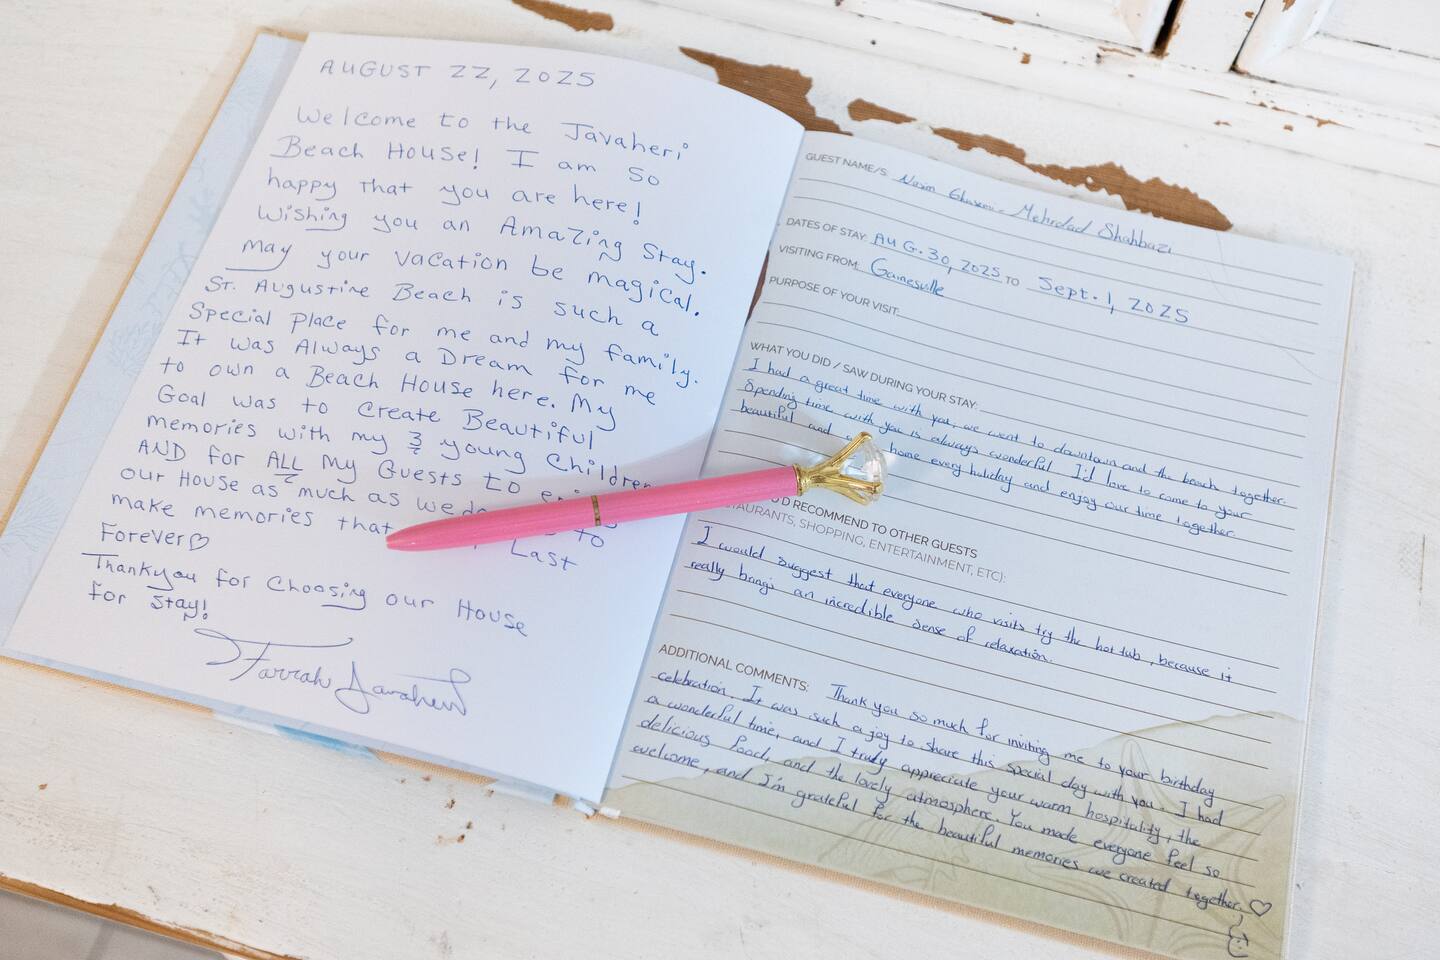 AUGUST 22, 2025
Welcome to the Javaheri
Beach House! I am so
happy that you are here!
Wishing you an Amazing Stay.
May your vacation be magical.
St. Augustine Beach is such a
Special Place for me and my family.
It was Always a Dream for me
to own a Beach House here. My
Goal was to create Beautiful
memories with my 3 young Children
AND for ALL my Guests to
our House as much as we do to
make memories that Last
Forever♡
Thankyou for Choosing our House
for Stay!
Farrah Javaheri
GUEST NAME/S: Mehrdad Shahbazi
DATES OF STAY: AUG. 30, 2025 TO Sept. 1, 2025
VISITING FROM: Gainesville
PURPOSE OF YOUR VISIT:
WHAT YOU DID / SAW DURING YOUR STAY:
I had a great time with you, we went to downtown and the beach together.
Spending time with you is always wonderful I'd love to come to your
beautiful and home every holiday and enjoy our time together.
'D RECOMMEND TO OTHER GUESTS
STAURANTS, SHOPPING, ENTERTAINMENT, ETC):
I would suggest that everyone who visits try the hot tub, because it
really brings an incredible sense of relaxation.
ADDITIONAL COMMENTS: Thank you so much for inviting me to your birthday
celebration. It was such a joy to share this special day with you. I had
a wonderful time, and I truly appreciate your warm hospitality, the
delicious food, and the lovely atmosphere. You made everyone feel so
welcome, and I'm grateful for the beautiful memories we created together.♡